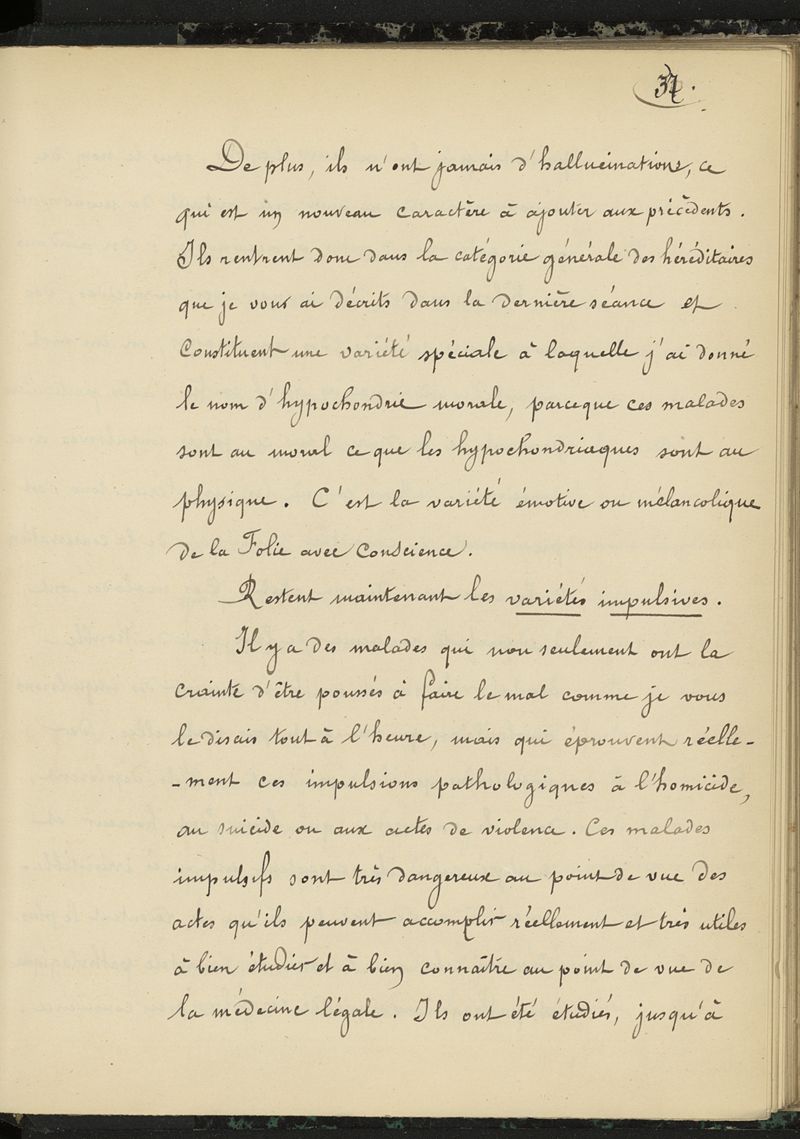 37.
De plus, ils n'ont jamais d'hallucinations, ce
qui est un nouveau caractère à ajouter aux précédents.
Ils rentrent donc dans la catégorie générale des héréditaires
que je vous ai décrits dans la dernière séance et
constituent une variété spéciale à laquelle j'ai donné
le nom d'hypochondrie morale, parceque ces malades
sont au moral ce que les hypochondriaques sont au
physique. C'est la variété émotive ou mélancolique
de la Folie avec Conscience.
Restent maintenant les variétés impulsives.
Il y a des malades qui non seulement ont la
crainte d'être poussés à faire le mal comme je vous
le disais tout à l'heure, mais qui éprouvent réelle-
-ment ces impulsions pathologiques à l'homicide,
au suicide ou aux actes de violence. Ces malades
impulsifs sont très dangereux au point de vue des
actes qu'ils peuvent accomplir réellement et très utiles
à bien étudier et à bien connaître au point de vue de
la médecine légale. Ils ont été étudiés, jusqu'à